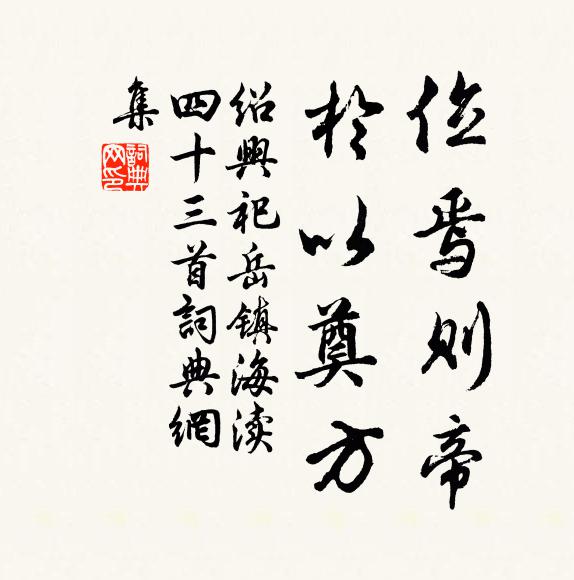 位焉则帝
於以奠方
紹興祀岳鎮海渎
四十三首詞典網
集
詞典網印